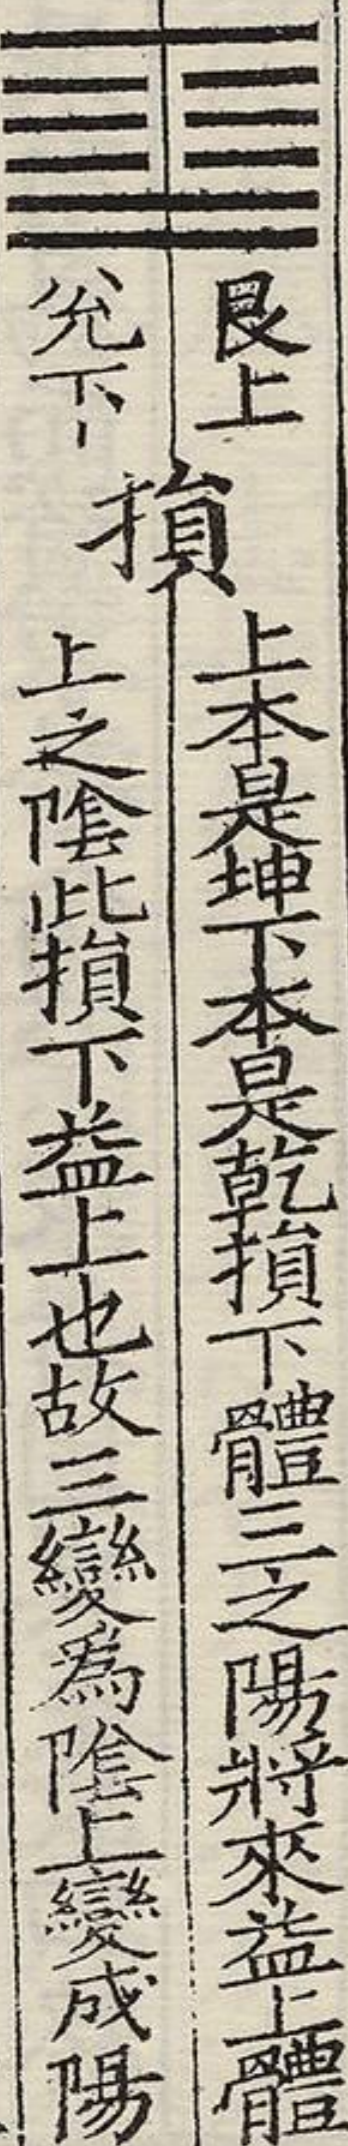 艮上
兊下
損
上本是坤下本是乾損下體三之陽將來益上體
上之陰此損下益上也故三變爲陰上變成陽